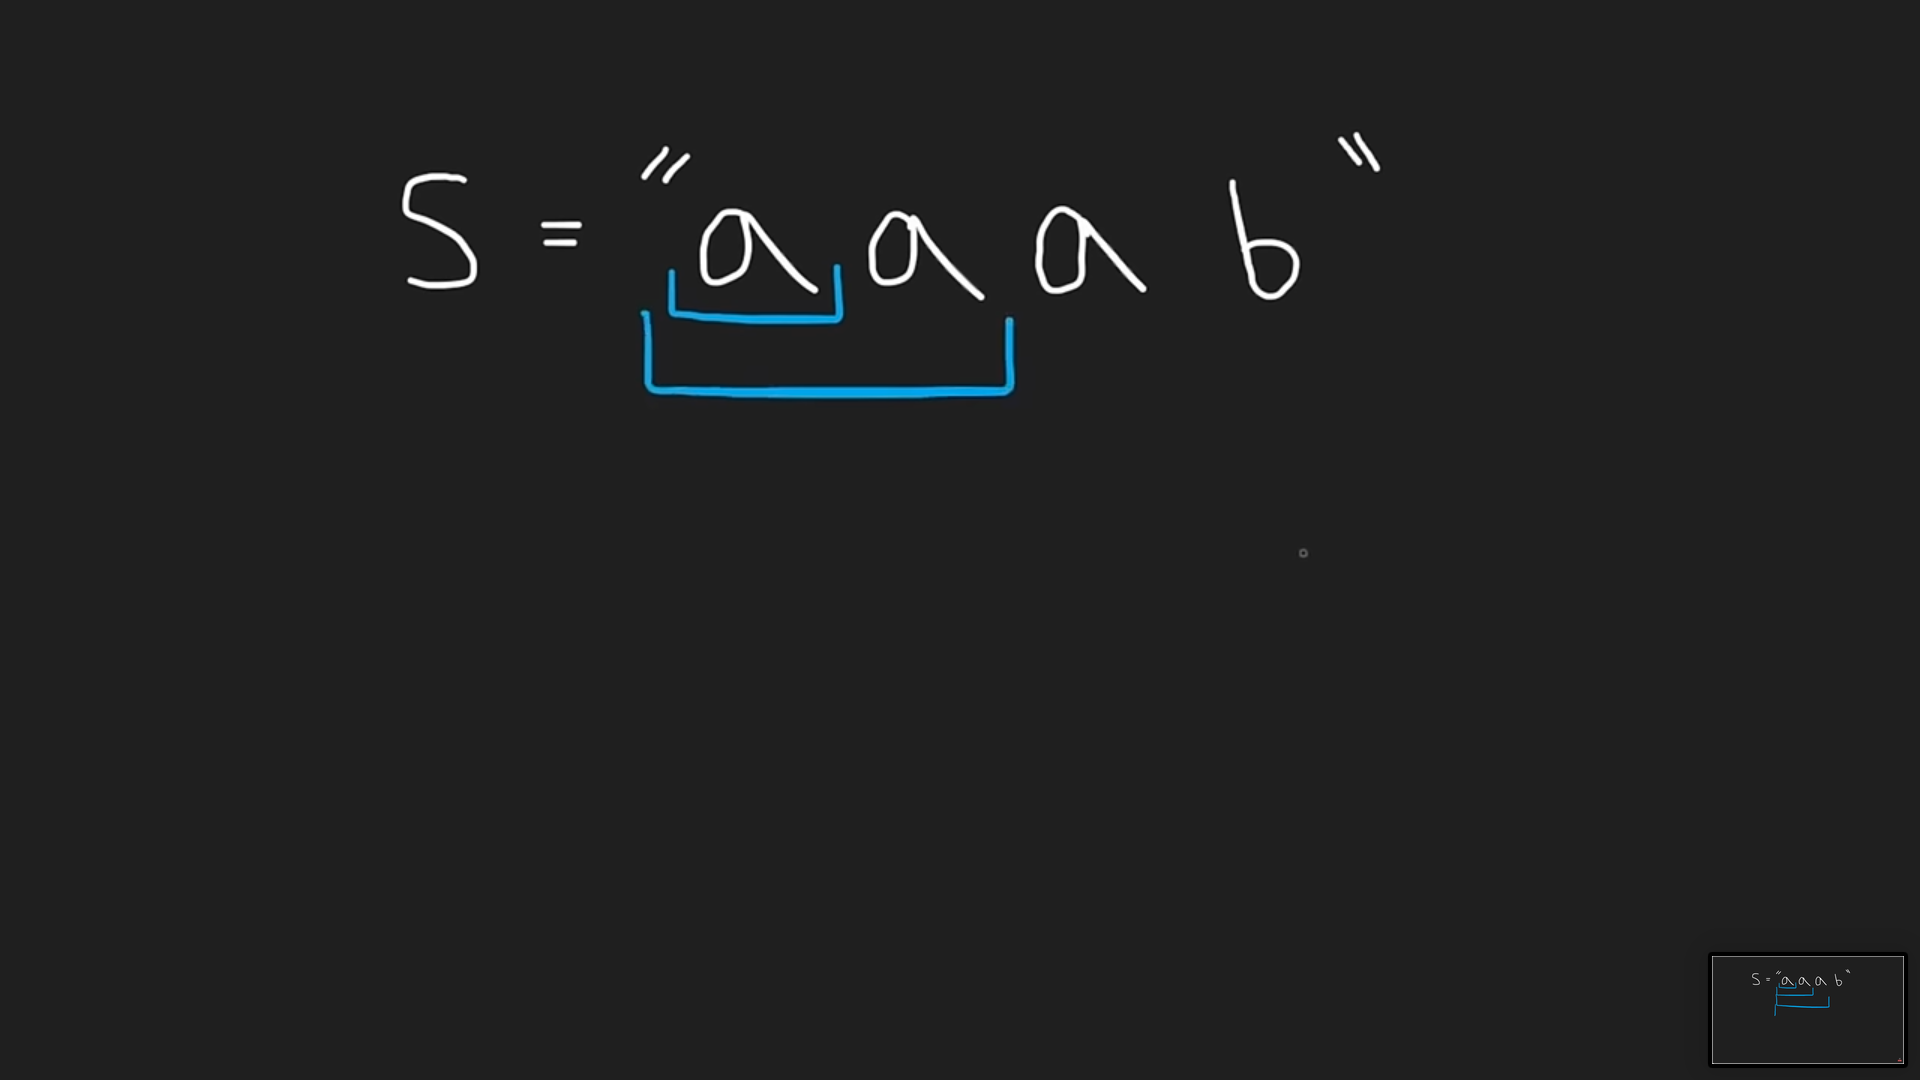 S = "a a a b"
S = "a a a b"